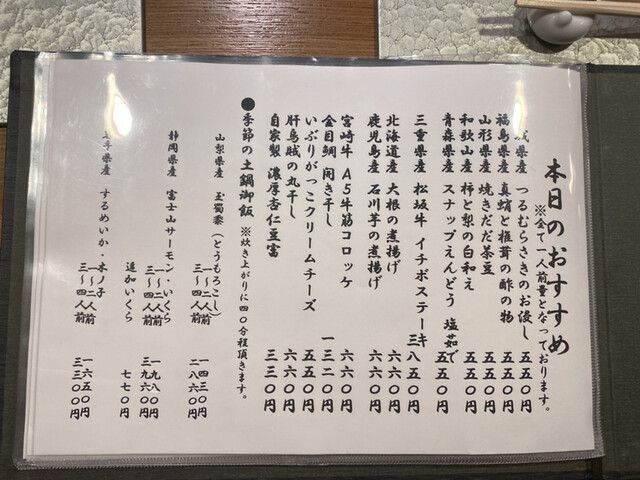 本日のおすすめ
※全て一人前量となっております。
城県産 つるむらさきのお浸し 五五〇円
福島県産 真蛸と椎茸の酢の物 五五〇円
山形県産 焼きだだ茶豆 五五〇円
和歌山産 柿と梨の白和え 五五〇円
青森県産 スナップえんどう 塩茹で 五五〇円
三重県産 松坂牛 イチボステーキ 三八五〇円
北海道産 大根の煮揚げ 六六〇円
鹿児島産 石川芋の煮揚げ 六六〇円
宮崎牛 A5牛筋コロッケ 六六〇円
金目鯛 開き干し 一三二〇円
いぶりがっこクリームチーズ 五五〇円
肝烏賊の丸干し 六六〇円
自家製 濃厚杏仁豆富 三三〇円
●季節の土鍋御飯 ※炊き上がりに四〇分程頂きます。
山梨県産 玉蜀黍(とうもろこし)
一〜二人前 一四三〇円
三〜四人前 二八六〇円
静岡県産 富士山サーモン・いくら
一〜二人前 一九八〇円
三〜四人前 三九六〇円
追加いくら 七七〇円
手県産 するめいか・木ノ子
一〜二人前 一六五〇円
三〜四人前 三三〇〇円